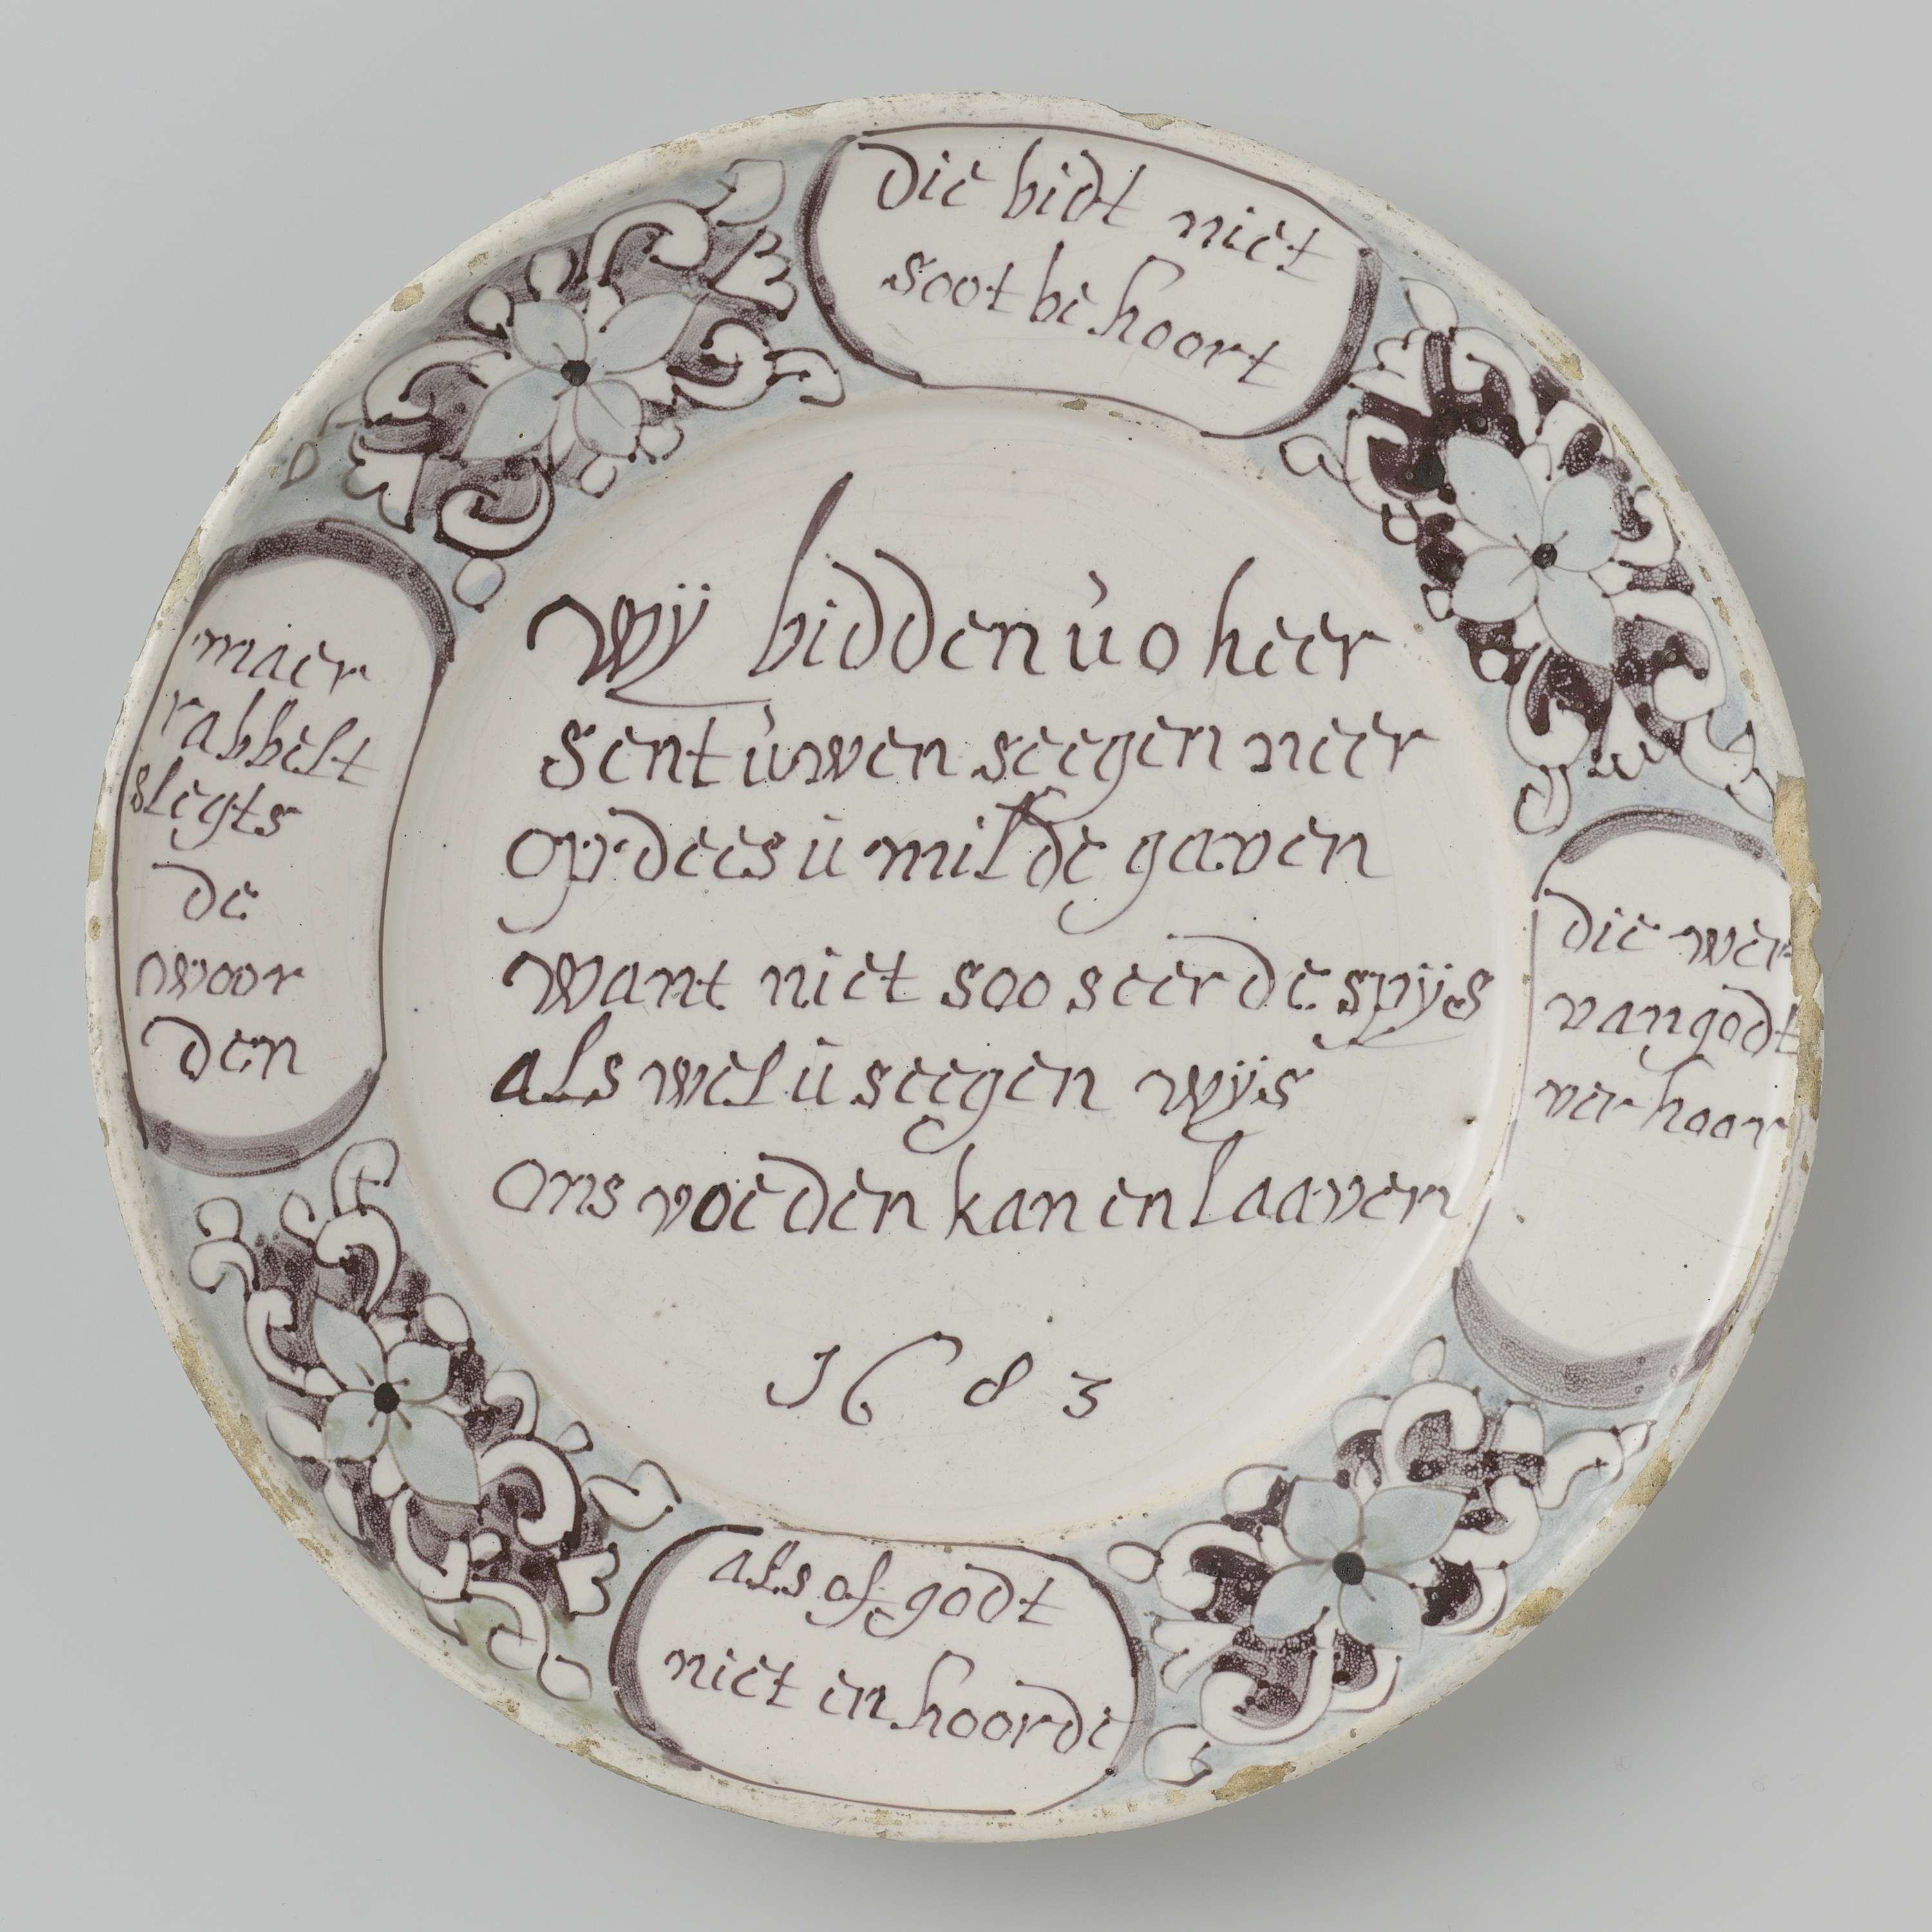 die bidt niet
soot behoort
maer
rabbelt
slegts
de
woor
den
als of godt
niet en hoorde
die wer
van godt
verhoor
Wÿ bidden ù o heer
sent ùwen seegen neer
op dees ù milde gaven
want niet soo seer de spÿs
als wel ù seegen wÿs
ons voeden kan en laaven
1683